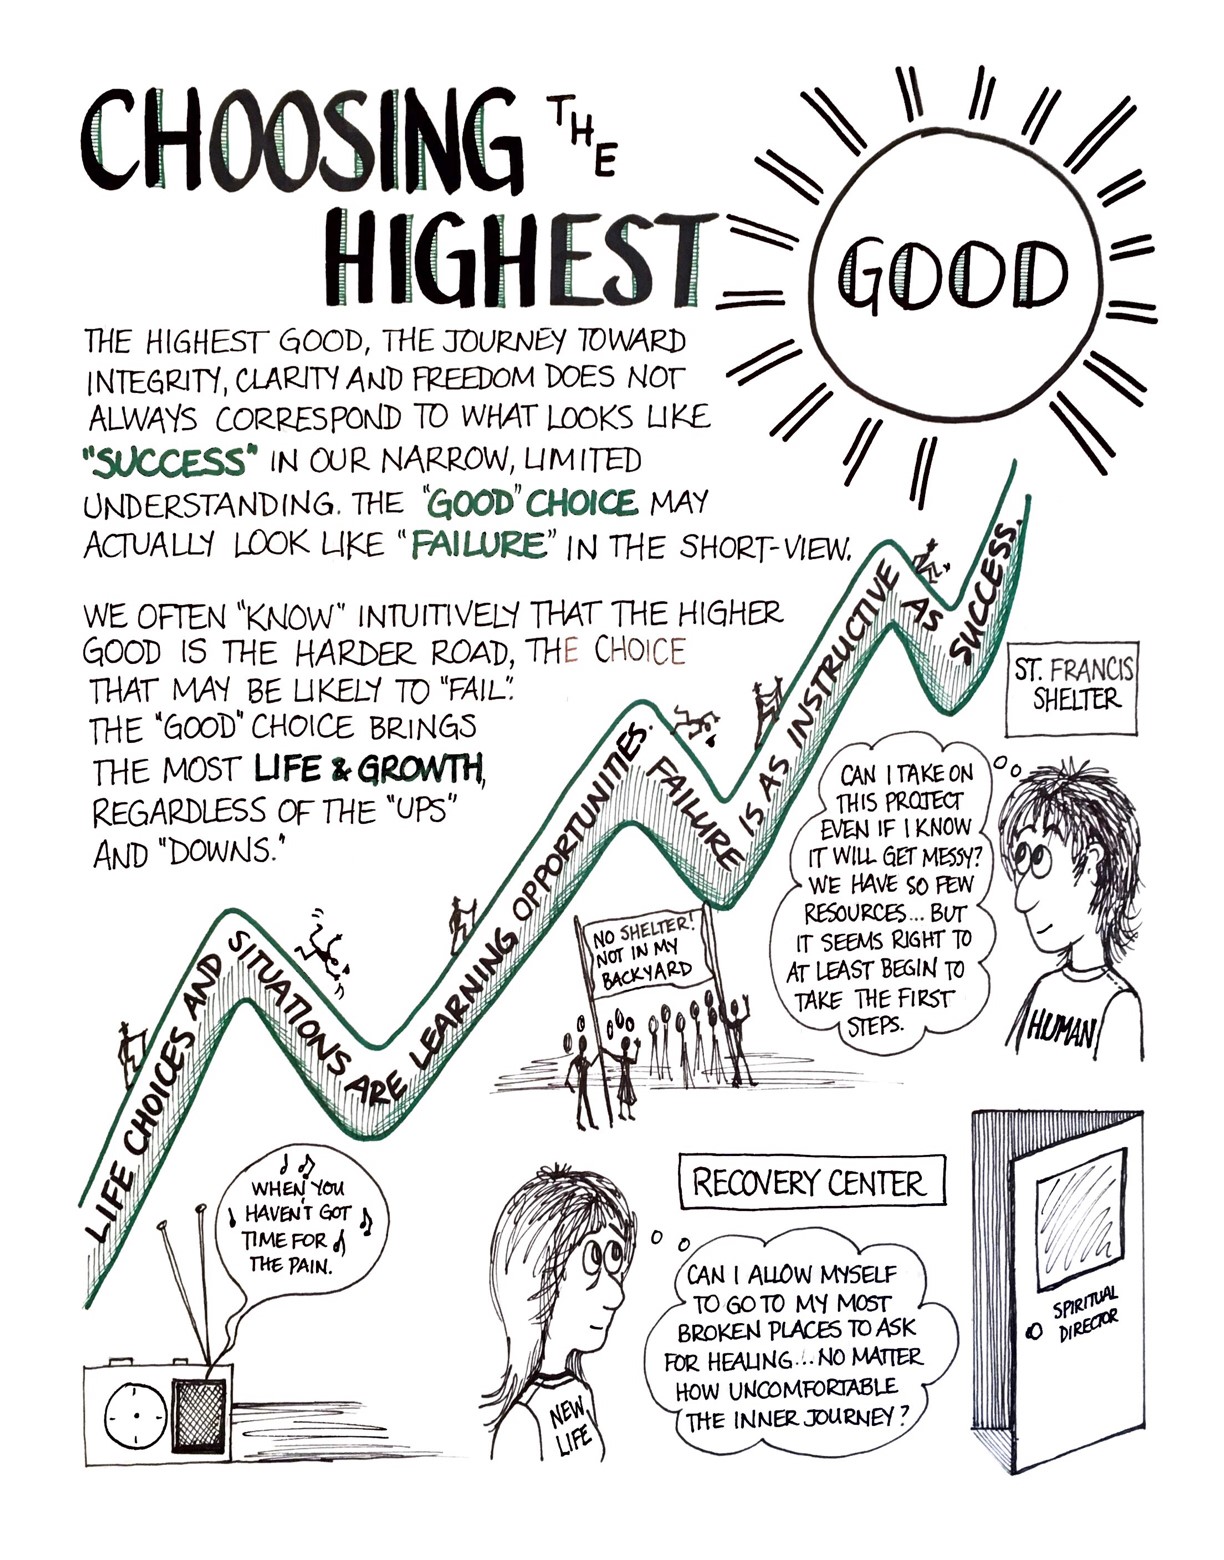 CHOOSING THE
HIGHEST
GOOD
THE HIGHEST GOOD, THE JOURNEY TOWARD
INTEGRITY, CLARITY AND FREEDOM DOES NOT
ALWAYS CORRESPOND TO WHAT LOOKS LIKE
"SUCCESS" IN OUR NARROW, LIMITED
UNDERSTANDING. THE "GOOD" CHOICE MAY
ACTUALLY LOOK LIKE "FAILURE" IN THE SHORT-VIEW.
WE OFTEN "KNOW" INTUITIVELY THAT THE HIGHER
GOOD IS THE HARDER ROAD, THE CHOICE
THAT MAY BE LIKELY TO "FAIL".
THE "GOOD" CHOICE BRINGS
THE MOST LIFE & GROWTH,
REGARDLESS OF THE "UPS"
AND "DOWNS."
LIFE CHOICES AND SITUATIONS ARE LEARNING OPPORTUNITIES. FAILURE IS AS INSTRUCTIVE AS SUCCESS.
ST. FRANCIS
SHELTER
CAN I TAKE ON
THIS PROJECT
EVEN IF I KNOW
IT WILL GET MESSY?
WE HAVE SO FEW
RESOURCES... BUT
IT SEEMS RIGHT TO
AT LEAST BEGIN TO
TAKE THE FIRST
STEPS.
HUMAN
NO SHELTER!
NOT IN MY
BACKYARD
WHEN YOU
HAVEN'T GOT
TIME FOR
THE PAIN.
RECOVERY CENTER
CAN I ALLOW MYSELF
TO GO TO MY MOST
BROKEN PLACES TO ASK
FOR HEALING... NO MATTER
HOW UNCOMFORTABLE
THE INNER JOURNEY?
NEW
LIFE
SPIRITUAL
DIRECTOR